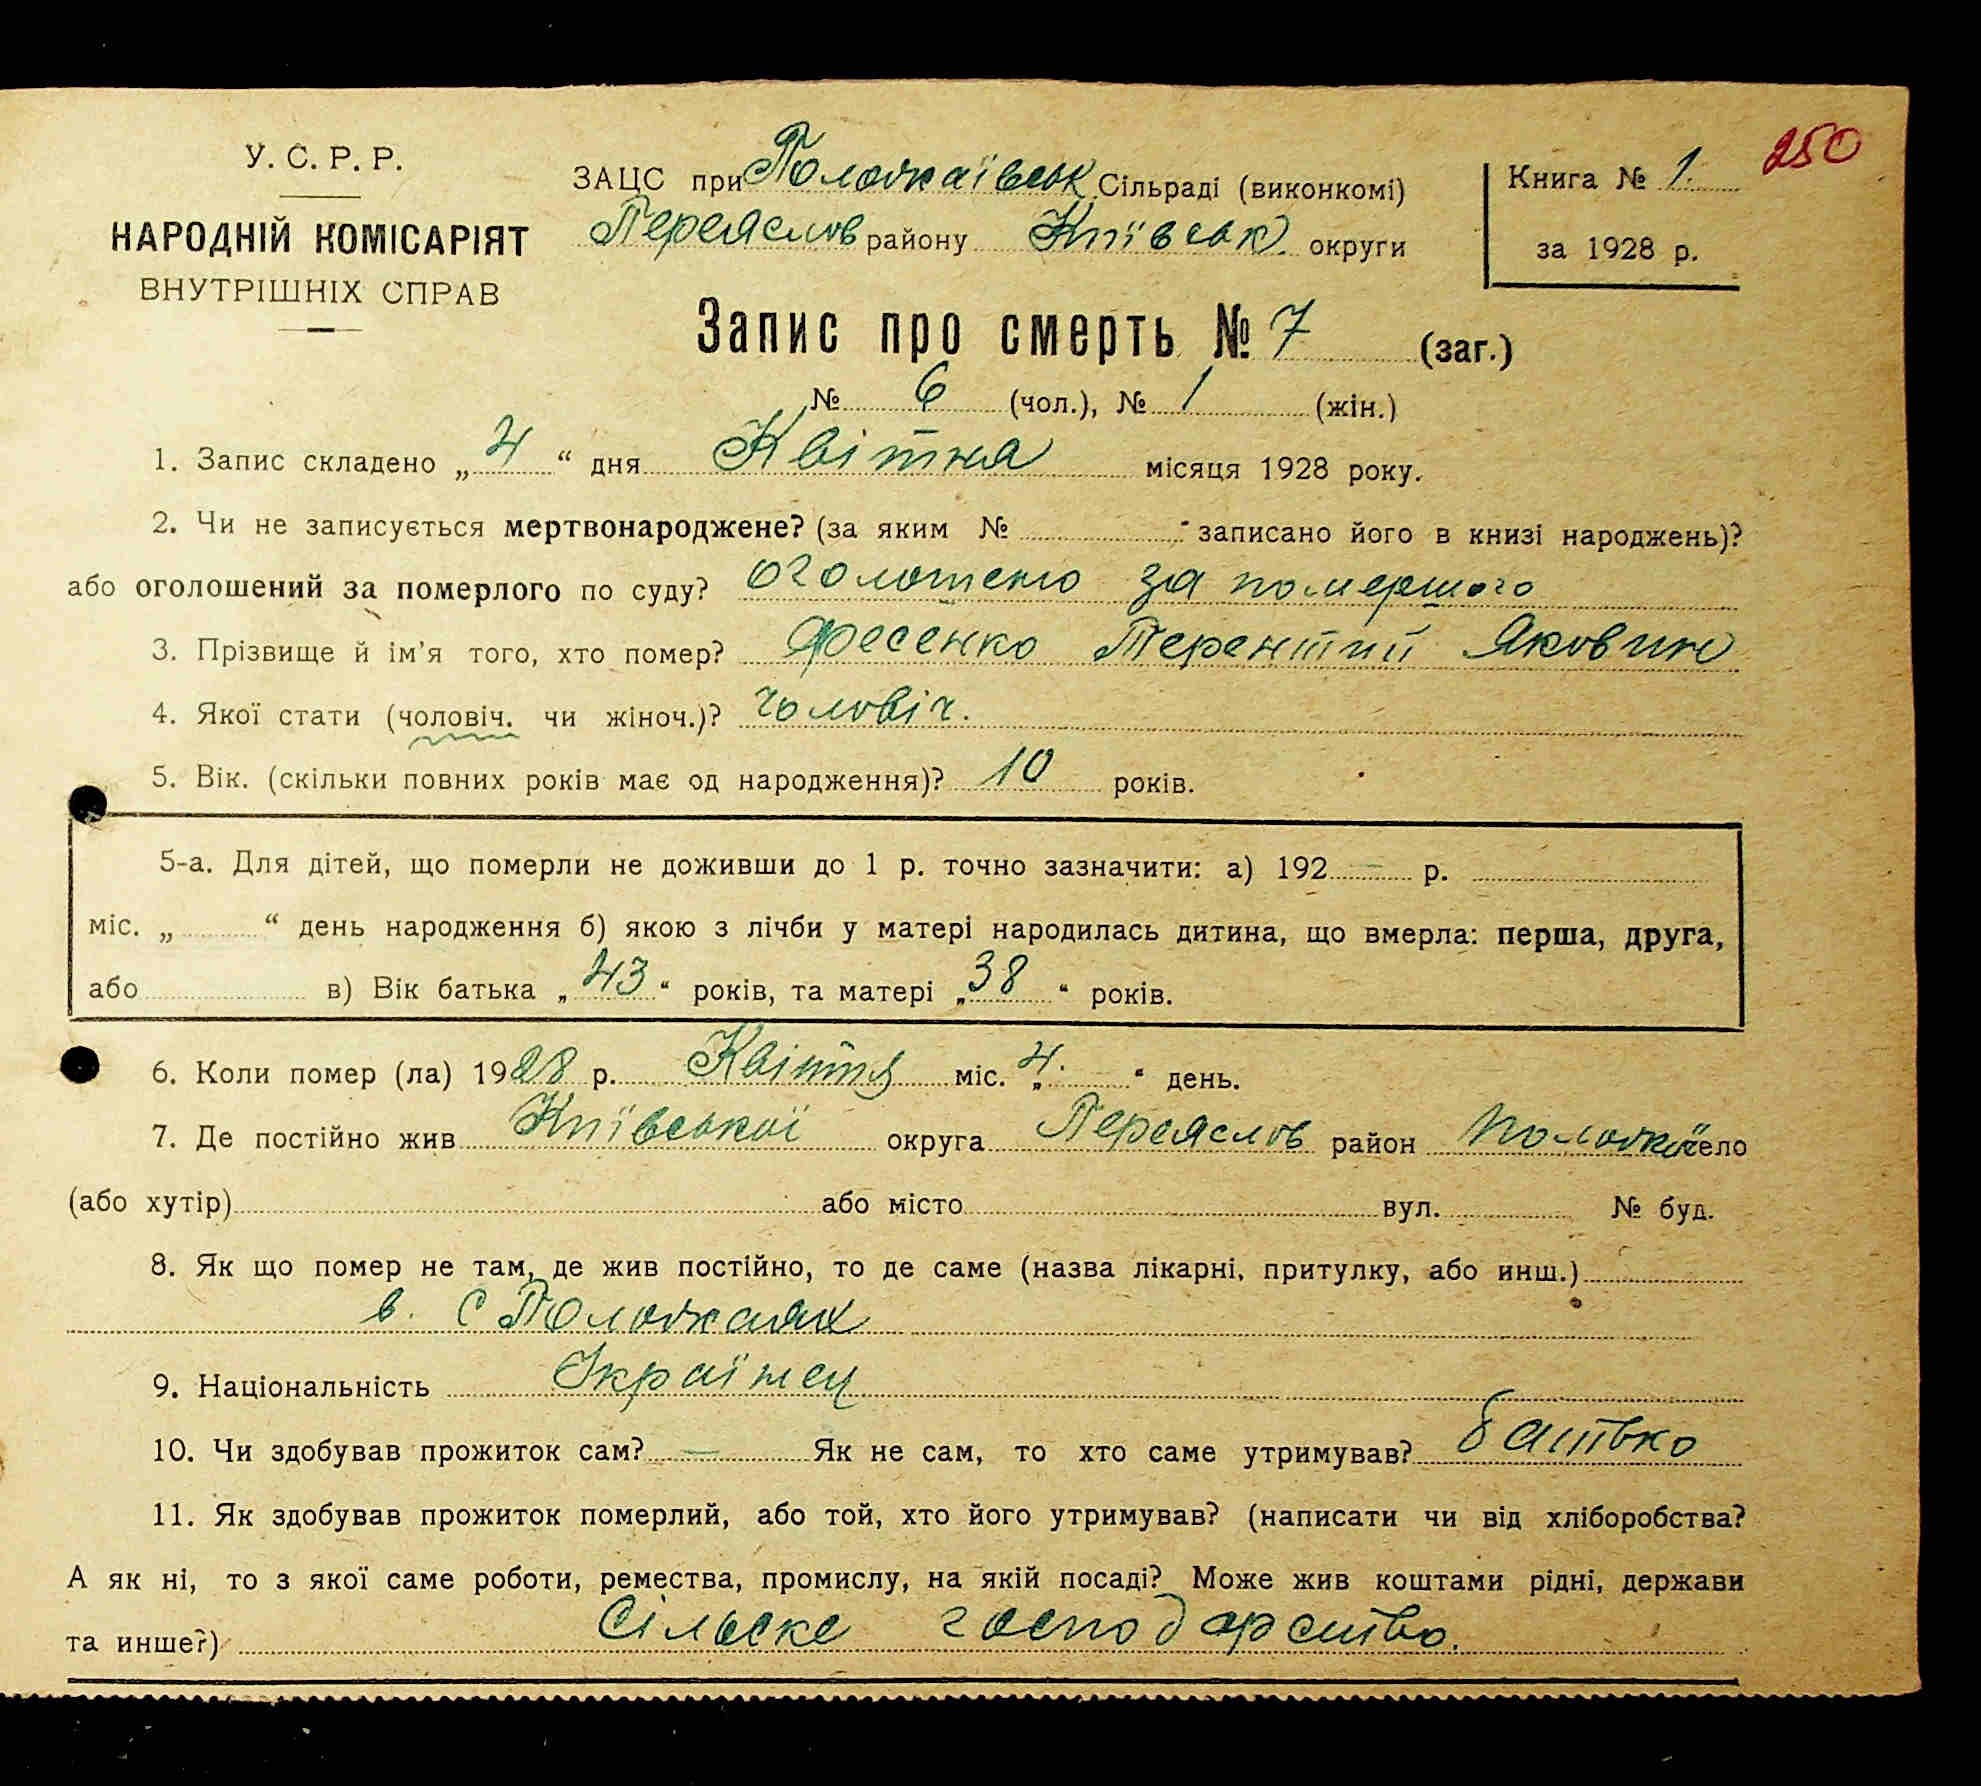 250
У. С. Р. Р.
НАРОДНІЙ КОМІСАРІЯТ
ВНУТРІШНІХ СПРАВ
ЗАЦС при Положаївськ Сільраді (виконкомі)
Переяслов району Київськ округи
Книга № 1.
за 1928 р.
Запис про смерть № 7 (заг.)
№ 6 (чол.), № 1 (жін.)
1. Запис складено „ 4 “ дня Квітня місяця 1928 року.
2. Чи не записується мертвонароджене? (за яким № записано його в книзі народжень)?
або оголошений за померлого по суду? оголошено за помершого
3. Прізвище й ім’я того, хто помер? Фесенко Терентий Якович
4. Якої стати (чоловіч. чи жіноч.)? чоловіч.
5. Вік. (скільки повних років має од народження)? 10 років.
5-а. Для дітей, що померли не доживши до 1 р. точно зазначити: а) 192 — р.
міс. „ “ день народження б) якою з лічби у матері народилась дитина, що вмерла: перша, друга,
або в) Вік батька „ 43 “ років, та матері „ 38 “ років.
6. Коли помер (ла) 1928 р. Квітня міс. „ 4. “ день.
7. Де постійно жив Київської округа Переяслов район село
(або хутір) або місто вул. № буд.
8. Як що помер не там, де жив постійно, то де саме (назва лікарні, притулку, або инш.)
в. с Положаях
9. Національність Українец
10. Чи здобував прожиток сам? — Як не сам, то хто саме утримував? батько
11. Як здобував прожиток померлий, або той, хто його утримував? (написати чи від хліборобства?
А як ні, то з якої саме роботи, ремества, промислу, на якій посаді? Може жив коштами рідні, держави
та инше?) Сільське господарство.